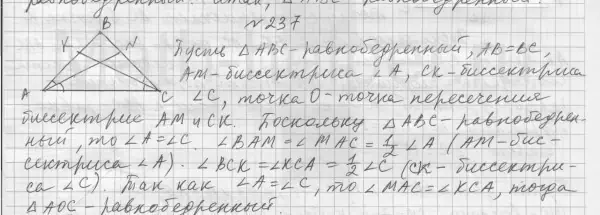 равнобедренный. Итак,
№237
B
K N
A C
Пусть △ABC-равнобедренный, AB=BC,
AM-биссектриса ∠A, CK-биссектриса
∠C, точка O-точка пересечения
биссектрис AM и CK. Поскольку △ABC-равнобедрен-
ный, то ∠A=∠C. ∠BAM=∠MAC=1/2 ∠A (AM-бис-
сектриса ∠A). ∠BCK=∠KCA=1/2∠C (CK-биссектри-
са ∠C). Так как ∠A=∠C, то ∠MAC=∠KCA, тогда
△AOC-равнобедренный.